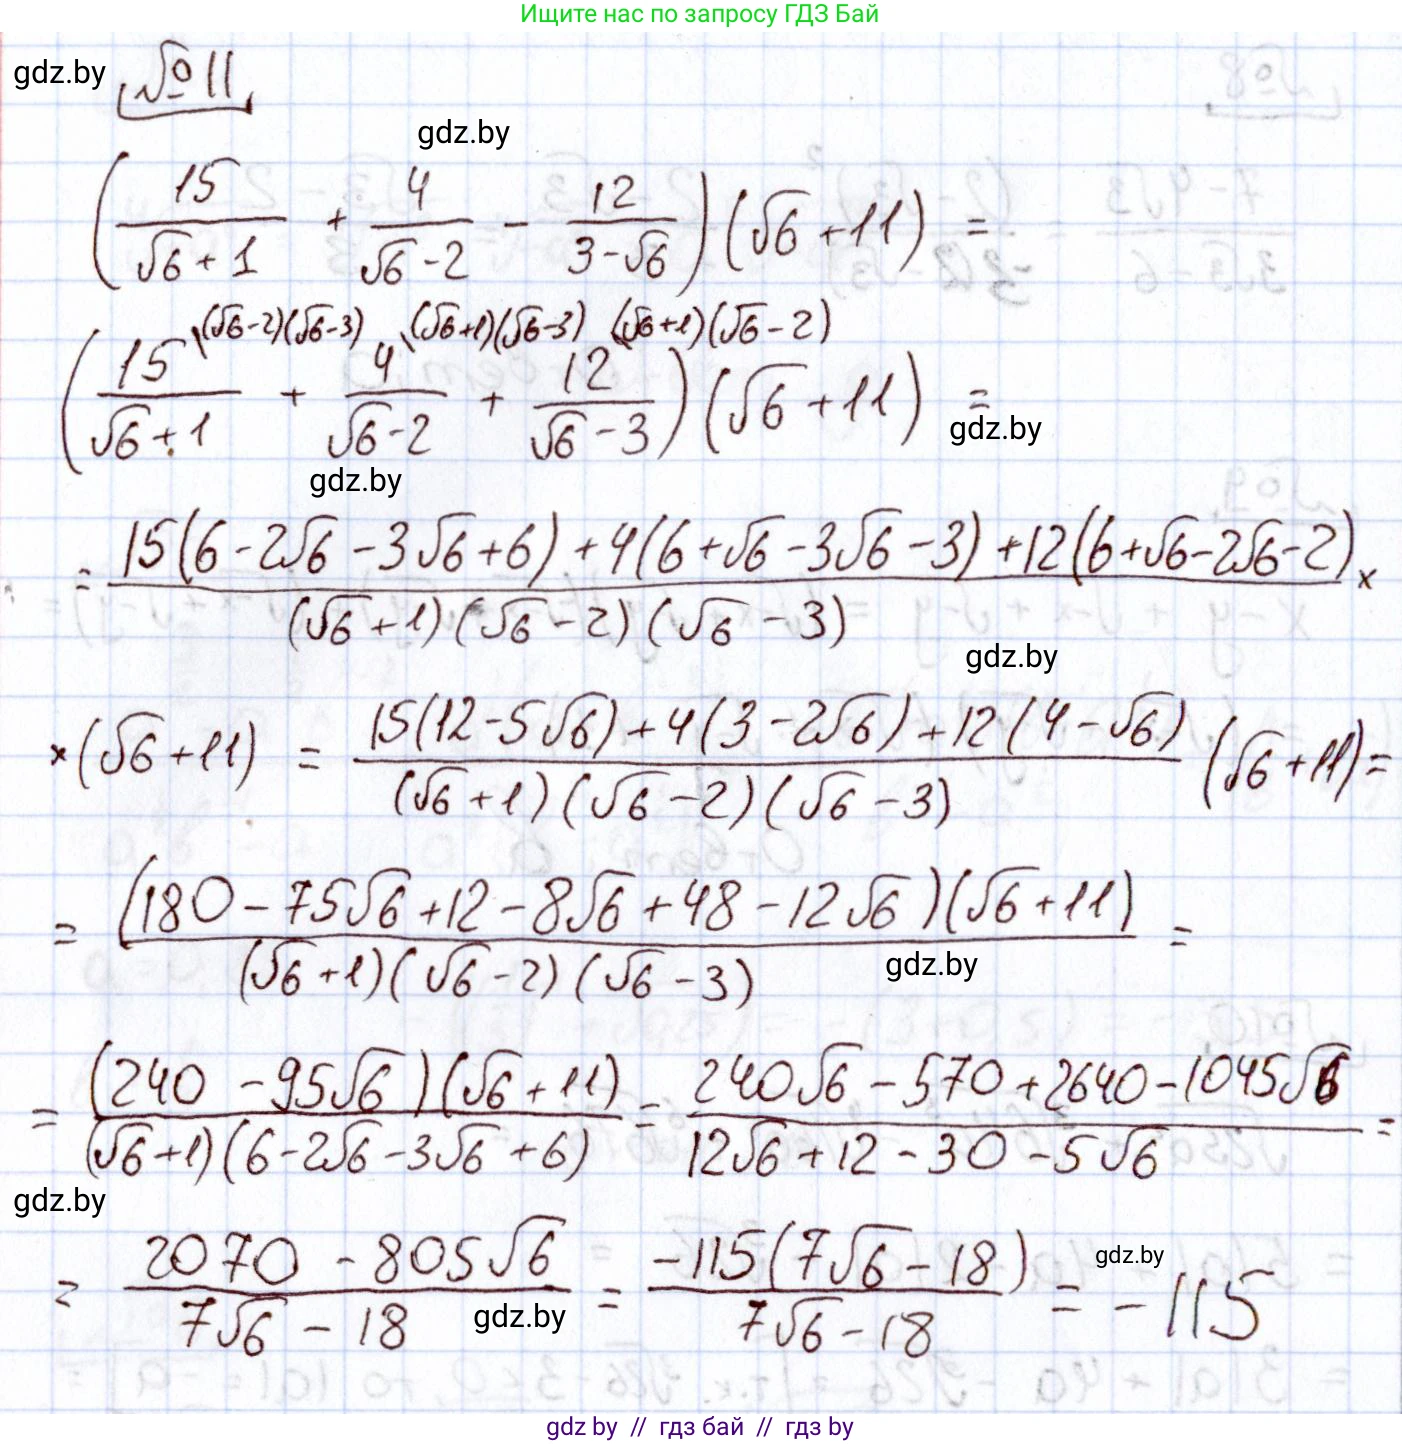 Ищите нас по запросу ГДЗ Бай
gdz.by
№11
gdz.by
(15/(√6+1) + 4/(√6-2) - 12/(3-√6))(√6+11) =
(√6-2)(√6-3) (√6+1)(√6-3) (√6+1)(√6-2)
(15/(√6+1) + 4/(√6-2) + 12/(√6-3))(√6+11) =
gdz.by
gdz.by
= (15(6-2√6-3√6+6)+4(6+√6-3√6-3)+12(6+√6-2√6-2))/((√6+1)(√6-2)(√6-3)) ×
gdz.by
×(√6+11) = (15(12-5√6)+4(3-2√6)+12(4-√6))/((√6+1)(√6-2)(√6-3)) (√6+11) =
= ((180-75√6+12-8√6+48-12√6)(√6+11))/((√6+1)(√6-2)(√6-3)) =
gdz.by
= ((240-95√6)(√6+11))/((√6+1)(6-2√6-3√6+6)) = (240√6-570+2640-1045√6)/(12√6+12-30-5√6) =
gdz.by
= (2070-805√6)/(7√6-18) = (-115(7√6-18))/(7√6-18) = -115
gdz.by
gdz.by
gdz.by // гдз бай // гдз by